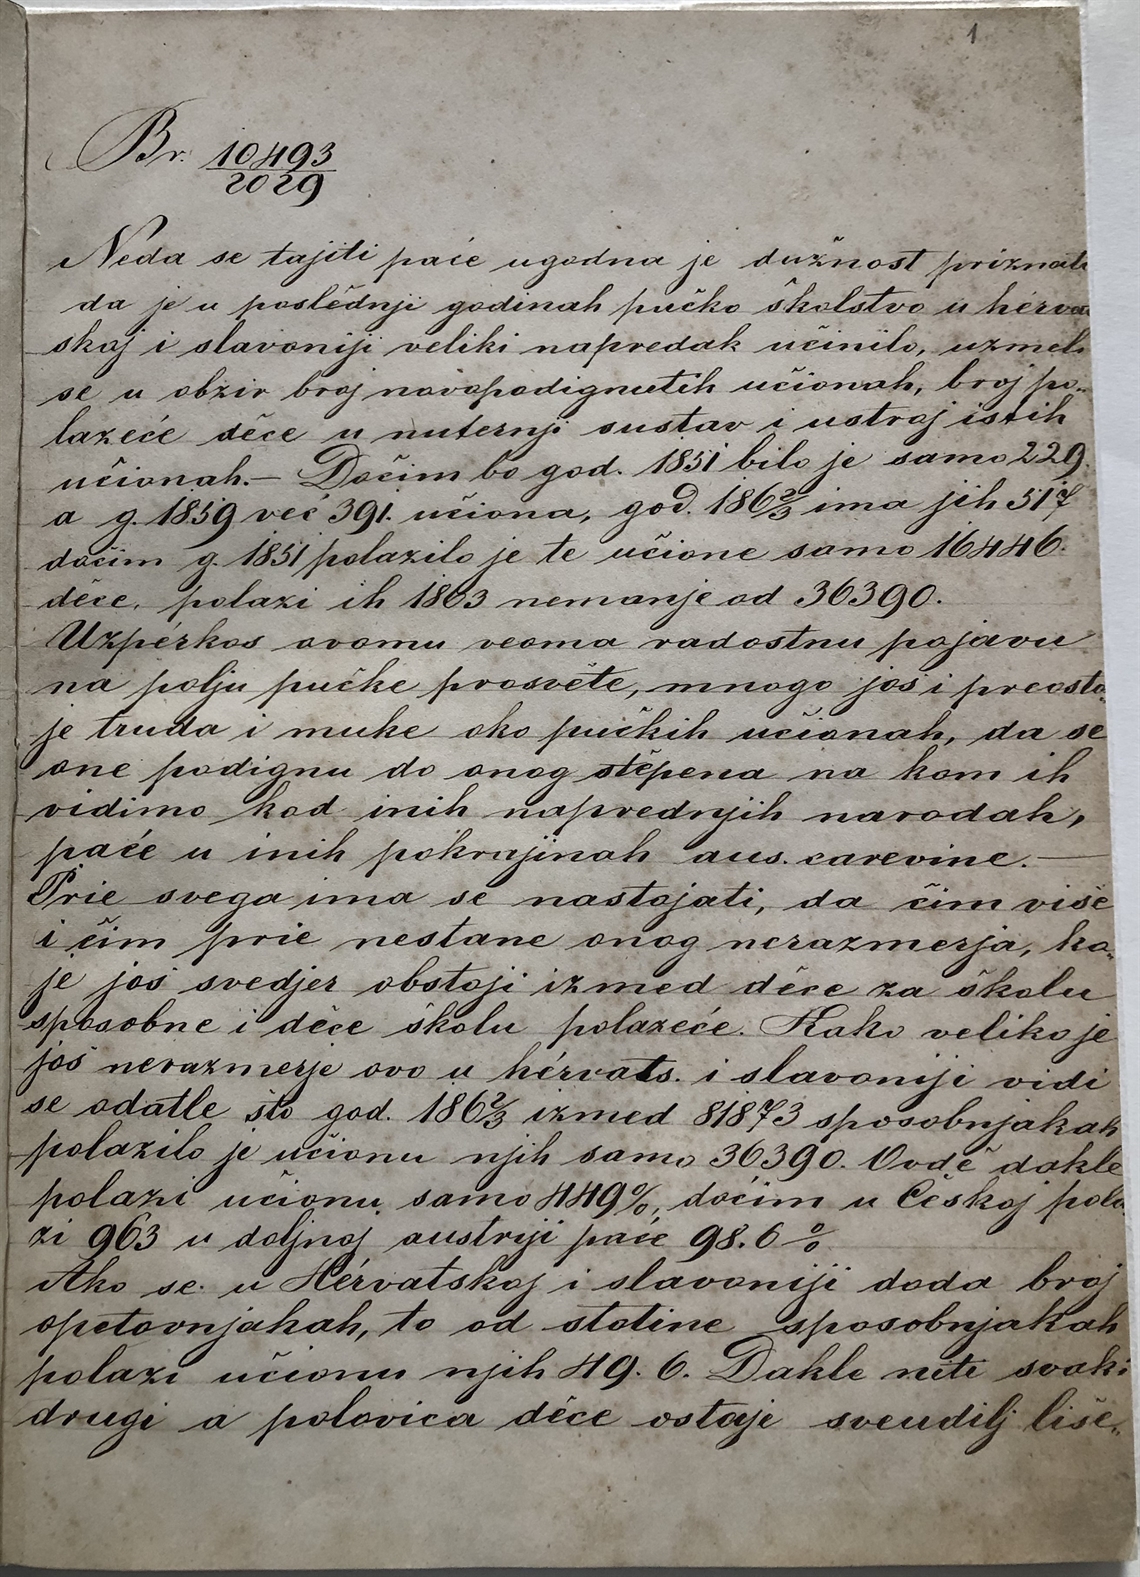 1
Br. 10493/2029
Neda se tajiti paće ugodna je dužnost priznati
da je u poslědnji godinah pučko školstvo u hérva
skoj i slavoniji veliki napredak učinilo, uzmeh
se u obzir broj novopodignutih učionah, broj po„
lazeće děce u nuternji sustav i ustroj istih
učionah.— Dočim bo god. 1851 bilo je samo 229.
a g. 1859 već 391. učiona, god. 186 2/3 ima jih 517
dočim g. 1851 polazilo je te učione samo 16446.
děce, polazi ih 1863 nemanje od 36390.
Uzpérkos ovomu veoma radostnu pojavu
na polju pučke prosvěte, mnogo još i preosta„
je truda i muke oko pučkih učionah, da se
one podignu do onog stěpena na kom ih
vidimo kod inih naprednjih narodah,
paće u inih pokrajinah aus. carevine.—
Prie svega ima se nastojati, da čim više
i čim prie nestane onog nerazmerja, ko„
je još svedjer obstoji izmed děce za školu
sposobne i děce školu polazeće. Kako veliko je
još nerazmerje ovo u hérvats. i slavoniji vidi
se odatle što god. 186 2/3 izmed 81873 sposobnjakah
polazilo je učionu njih samo 36390. Ovdě dakle
polazi učionu samo 449%, dočim u Českoj pola
zi 963 u doljnoj austriji paće 98.6 %
Ako se u Hérvatskoj i slavoniji doda broj
opetovnjakah, to od stotine sposobnjakah
polazi učionu njih 49.6. Dakle niti svaki
drugi a polovica děce ostaje sveudilj liše„